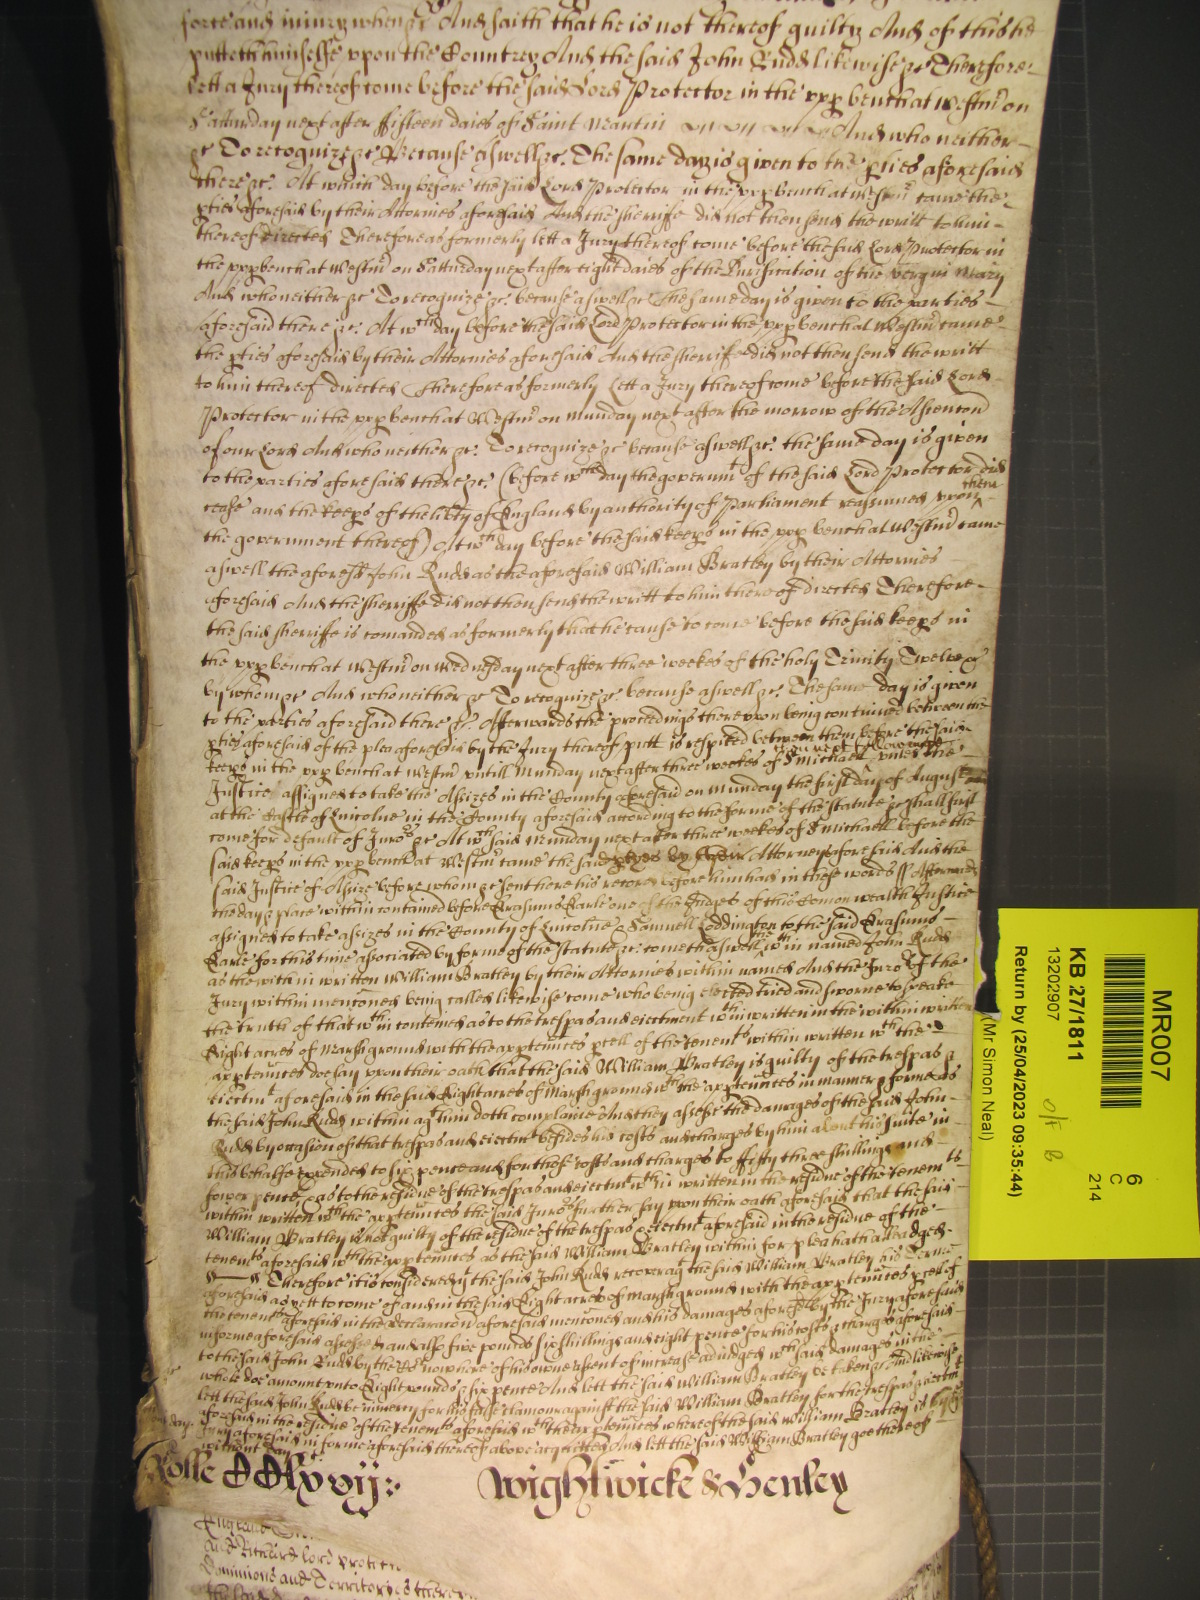 force and iniury when &c And saith that he is not thereof guilty And of this he
putteth himselfe vpon the Countrey And the said John Rudd likewise &c Therefore
lett a Jury thereof come before the said Lord Protector in the vpp bench at Westmr on
Satturday next after fifteen daies of Saint Martin And who neither
&c To recognize &c Because aswell &c. The same day is given to the pties aforesaid
there &c. At which day before the said Lord Protector in the vpp bench at Westmr came the
pties aforesaid by their Attornies aforesaid And the sherriffe did not then send the writt to him
thereof directed Therefore as formerly lett a Jury thereof come before the said Lord Protector in
the vpp bench at Westmr on Satturday next after eight daies of the Purification of the vergin Mary
And who neither &c To recognize &c. because aswell &c The same day is given to the parties
aforesaid there &c. At wch day before the said Lord Protector in the vpp bench at Westmr came
the pties aforesaid by their Attornies aforesaid And the sherriffe did not then send the writt
to him thereof directed Therefore as formerly lett a Jury thereof come before the said Lord
Protector in the vpp bench at Westmr on Munday next after the morrow of the Ascencon
of our Lord And who neither &c. To recognize &c because aswell &c. the same day is given
to the parties aforesaid there &c. (before wch day the governmt of the said Lord Protector did
cease and the keeps of the liberty of England by authority of Parliament reassumed vpon them
the government thereof) At wch day before the said keeps in the vpp bench at Westmr came
aswell the aforesd John Rudd as the aforesaid William Bratley by their Attornies
aforesaid And the sherriffe did not then send the writt to him thereof directed Therefore
the said sherriffe is comanded as formerly that he cause to come before the said keeps in
the vpp bench at Westmr on Wednesday next after three weekes of the holy Trinity Twelve &c
by whom &c And who neither &c To recognize &c. because aswell &c. The same day is given
to the parties aforesaid there &c. Afterwards the proceedings therevpon being continued betweene the
pties aforesaid of the plea aforesaid by the Jury thereof putt is respited between them before the said
keeps in the vpp bench at Westmr vntill Munday next after three weekes of St Michaell then next following vnles the
Justice assigned to take the Assizes in the County aforesaid on Munday the first day of August
at the Castle of Lincolne in the County aforesaid according to the forme of the statute &c shall first
come for default of Juros &c At wch said Munday next after three weekes of St Michaell before the
said keeps in the vpp bench at Westmr came the said ptyes by their Attorneys aforesaid And the
said Justice of Assize before whom &c sent here his record before him had in these words ss Afterwards
the day & place within contained before Erasmus Earle one of the Judges of this Comon wealth Justice
assigned to take assizes in the County of Lincolne & Samuell Loddington to the said Erasmus
Earle for this time associated by forme of the statute &c. cometh aswell the wthin named John Rudd
as the within written William Bratley by their Attornies within named And the Juros of the
Jury within mentioned being called likewise come who being elected tried and sworne to speake
the truth of that wthin contained as to the trespas and eiectment wthin written in the within written
Eight acres of Marsh ground with the apptennces pcell of the tenemts within written wth the
apptennces doe say vpon their oath that the said William Bratley is guilty of the trespas &
eiectmt aforesaid in the said Eight acres of Marsh ground wth the apptennces in manner & forme as
the said John Rudd within agt him doth complaine And they assesse the damages of the said John
Rudd by occasion of that trespas and eiectmt besides his costs and charges by him about his suite in
this behalfe expended to six pence and for those costs and charges to fifty three shillings and
fower pence & as to the residue of the trespas and eiectmt wthin written in the residue of the tenemts
within written wth the apptennces the said Juros further say vpon their oath aforesaid that the said
William Bratley is not guilty of the residue of the trespas & eiectmt aforesaid in the residue of the
tenemts aforesaid wth the apptennces as the said William Bratley within for plea hath alleadged
Therefore it is considered yt the said John Rudd recover agt the said William Bratley his Terme
aforesaid as yett to come of and in the said Eight acres of marsh ground with the apptennces pcell of
the tenemts aforesaid in the declaracon aforesaid mencioned and his damages aforesd by the Jury aforesaid
in forme aforesaid assessed and also five pounds six shillings and eight pence for his costs & charges aforesaid
to the said John Rudd by the Court now here of his owne assent of increase adiudged wch said damages in the
whole doe amount vnto Eight pounds & six pence And lett the said William Bratley be taken &c And likewise
lett the said John Rudd be in mercy for his false clamour against the said William Bratley for the trespas & eiectmt
aforesaid in the residue of the tenemts aforesaid wth the apptennces whereof the said William Bratley is by the
Jury aforesaid in forme aforesaid thereof above acquitted And lett the said William Bratley goe thereof
without day &c.
Rolle DDlxvij:
Wightwicke & Henley
and Richard lord protector
Dominions and Territories thereu
MR007
6
C
214
KB 27/1811
13202907
O/F B
Return by (25/04/2023 09:35:44)
(Mr Simon Neal)